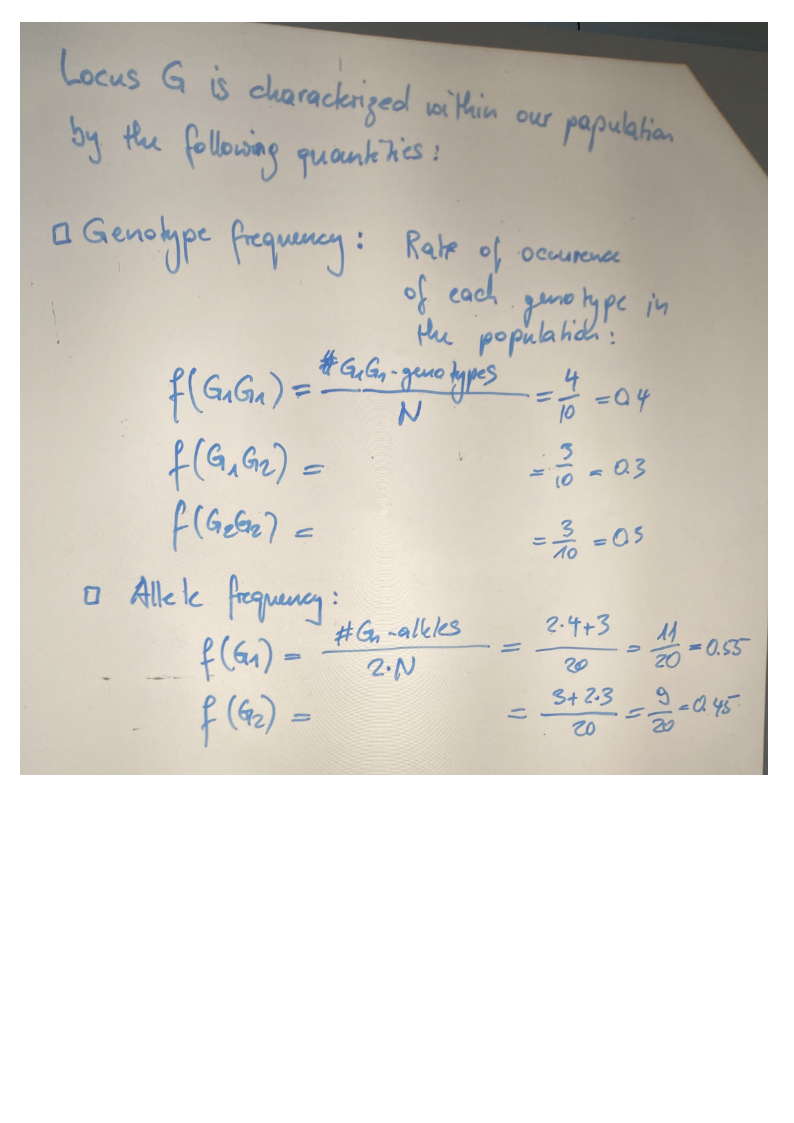 Locus G is characterized within our population
by the following quantities:
□ Genotype frequency: Rate of occurrence
of each genotype in
the population:
f(G₁G₁) = #G₁G₁-genotypes / N = 4/10 = 0.4
f(G₁G₂) = = 3/10 = 0.3
f(G₂G₂) = = 3/10 = 0.3
□ Allele frequency:
f(G₁) = #G₁-alleles / 2·N = 2·4+3 / 20 = 11/20 = 0.55
f(G₂) = = 3+2·3 / 20 = 9/20 = 0.45